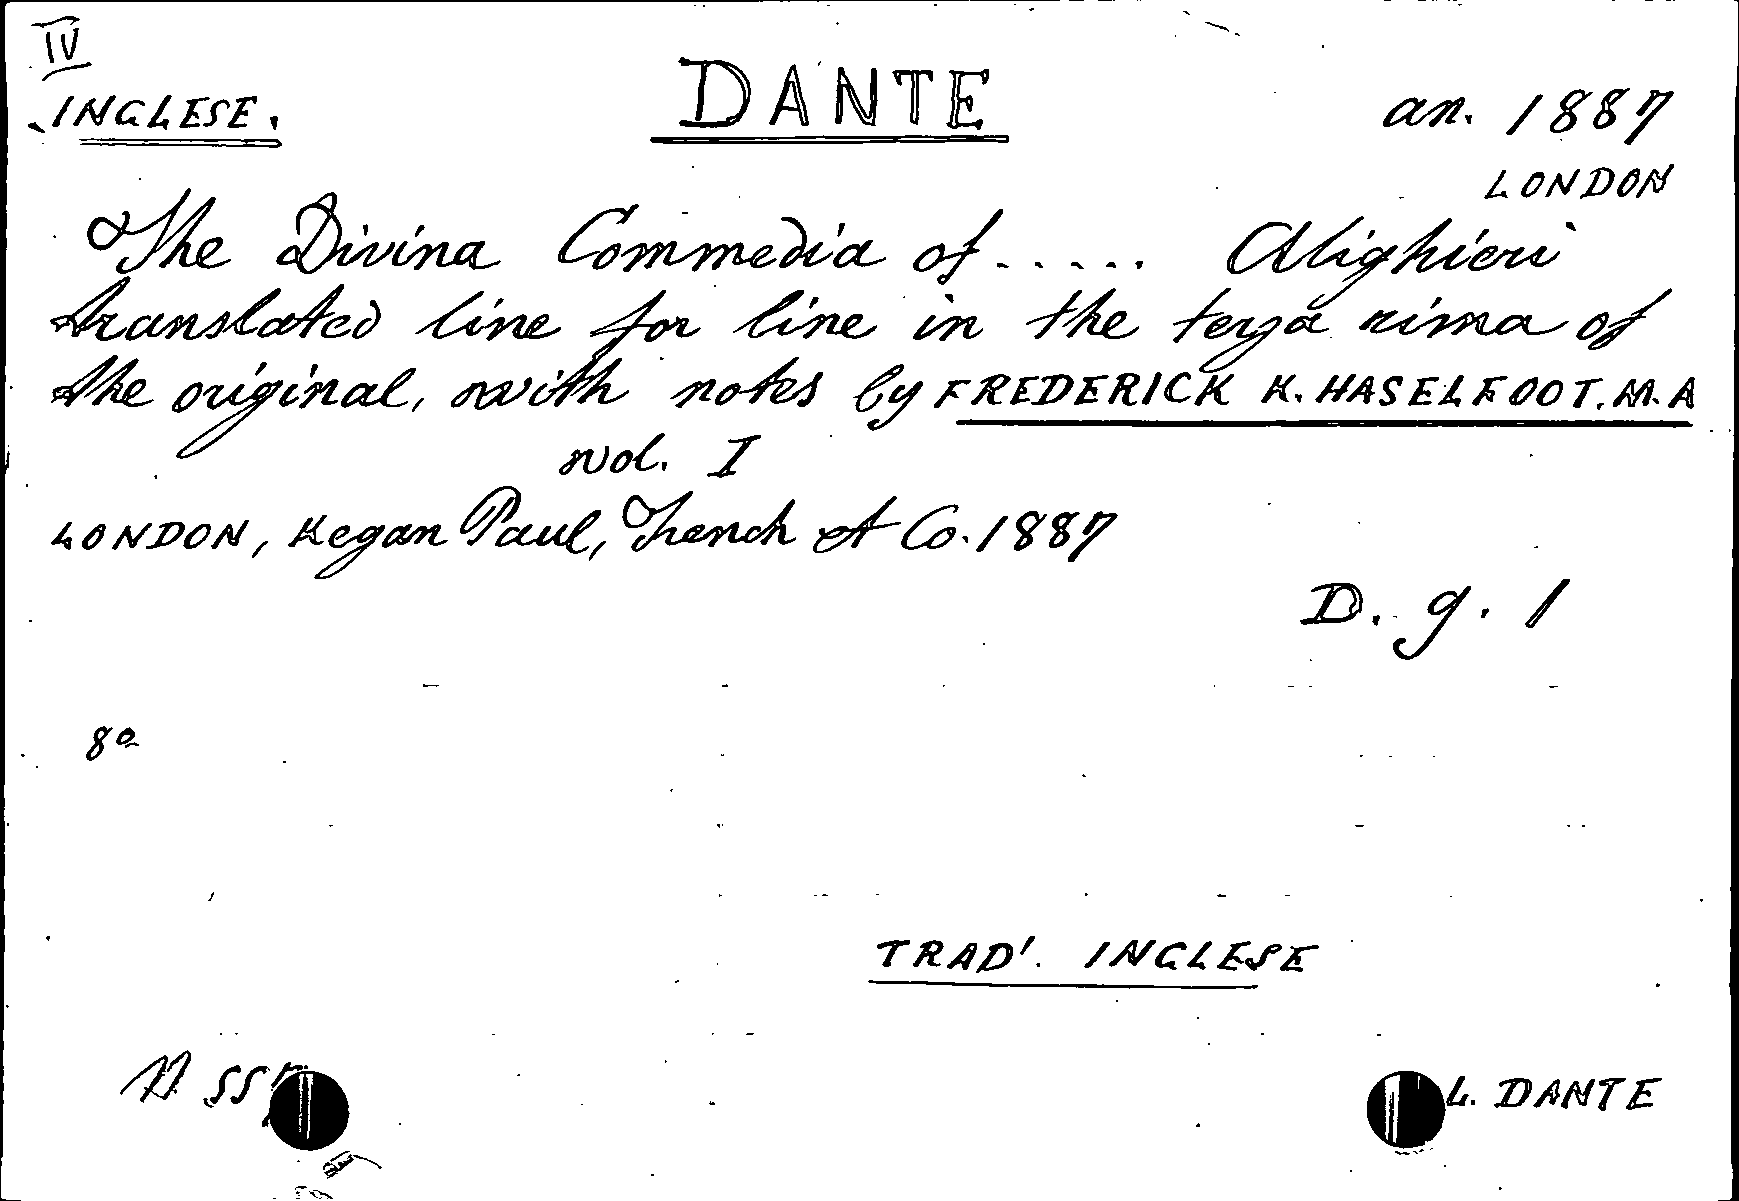 IV
INGLESE.
DANTE
an. 1887
LONDON
The Divina Commedia of ..... Alighieri
translated line for line in the terza rima of
the original, with notes by FREDERICK K. HASELFOOT. M. A
vol. I
LONDON, Kegan Paul, Trench et Co. 1887
D. g. 1
8º
TRAD'. INGLESE
L. DANTE